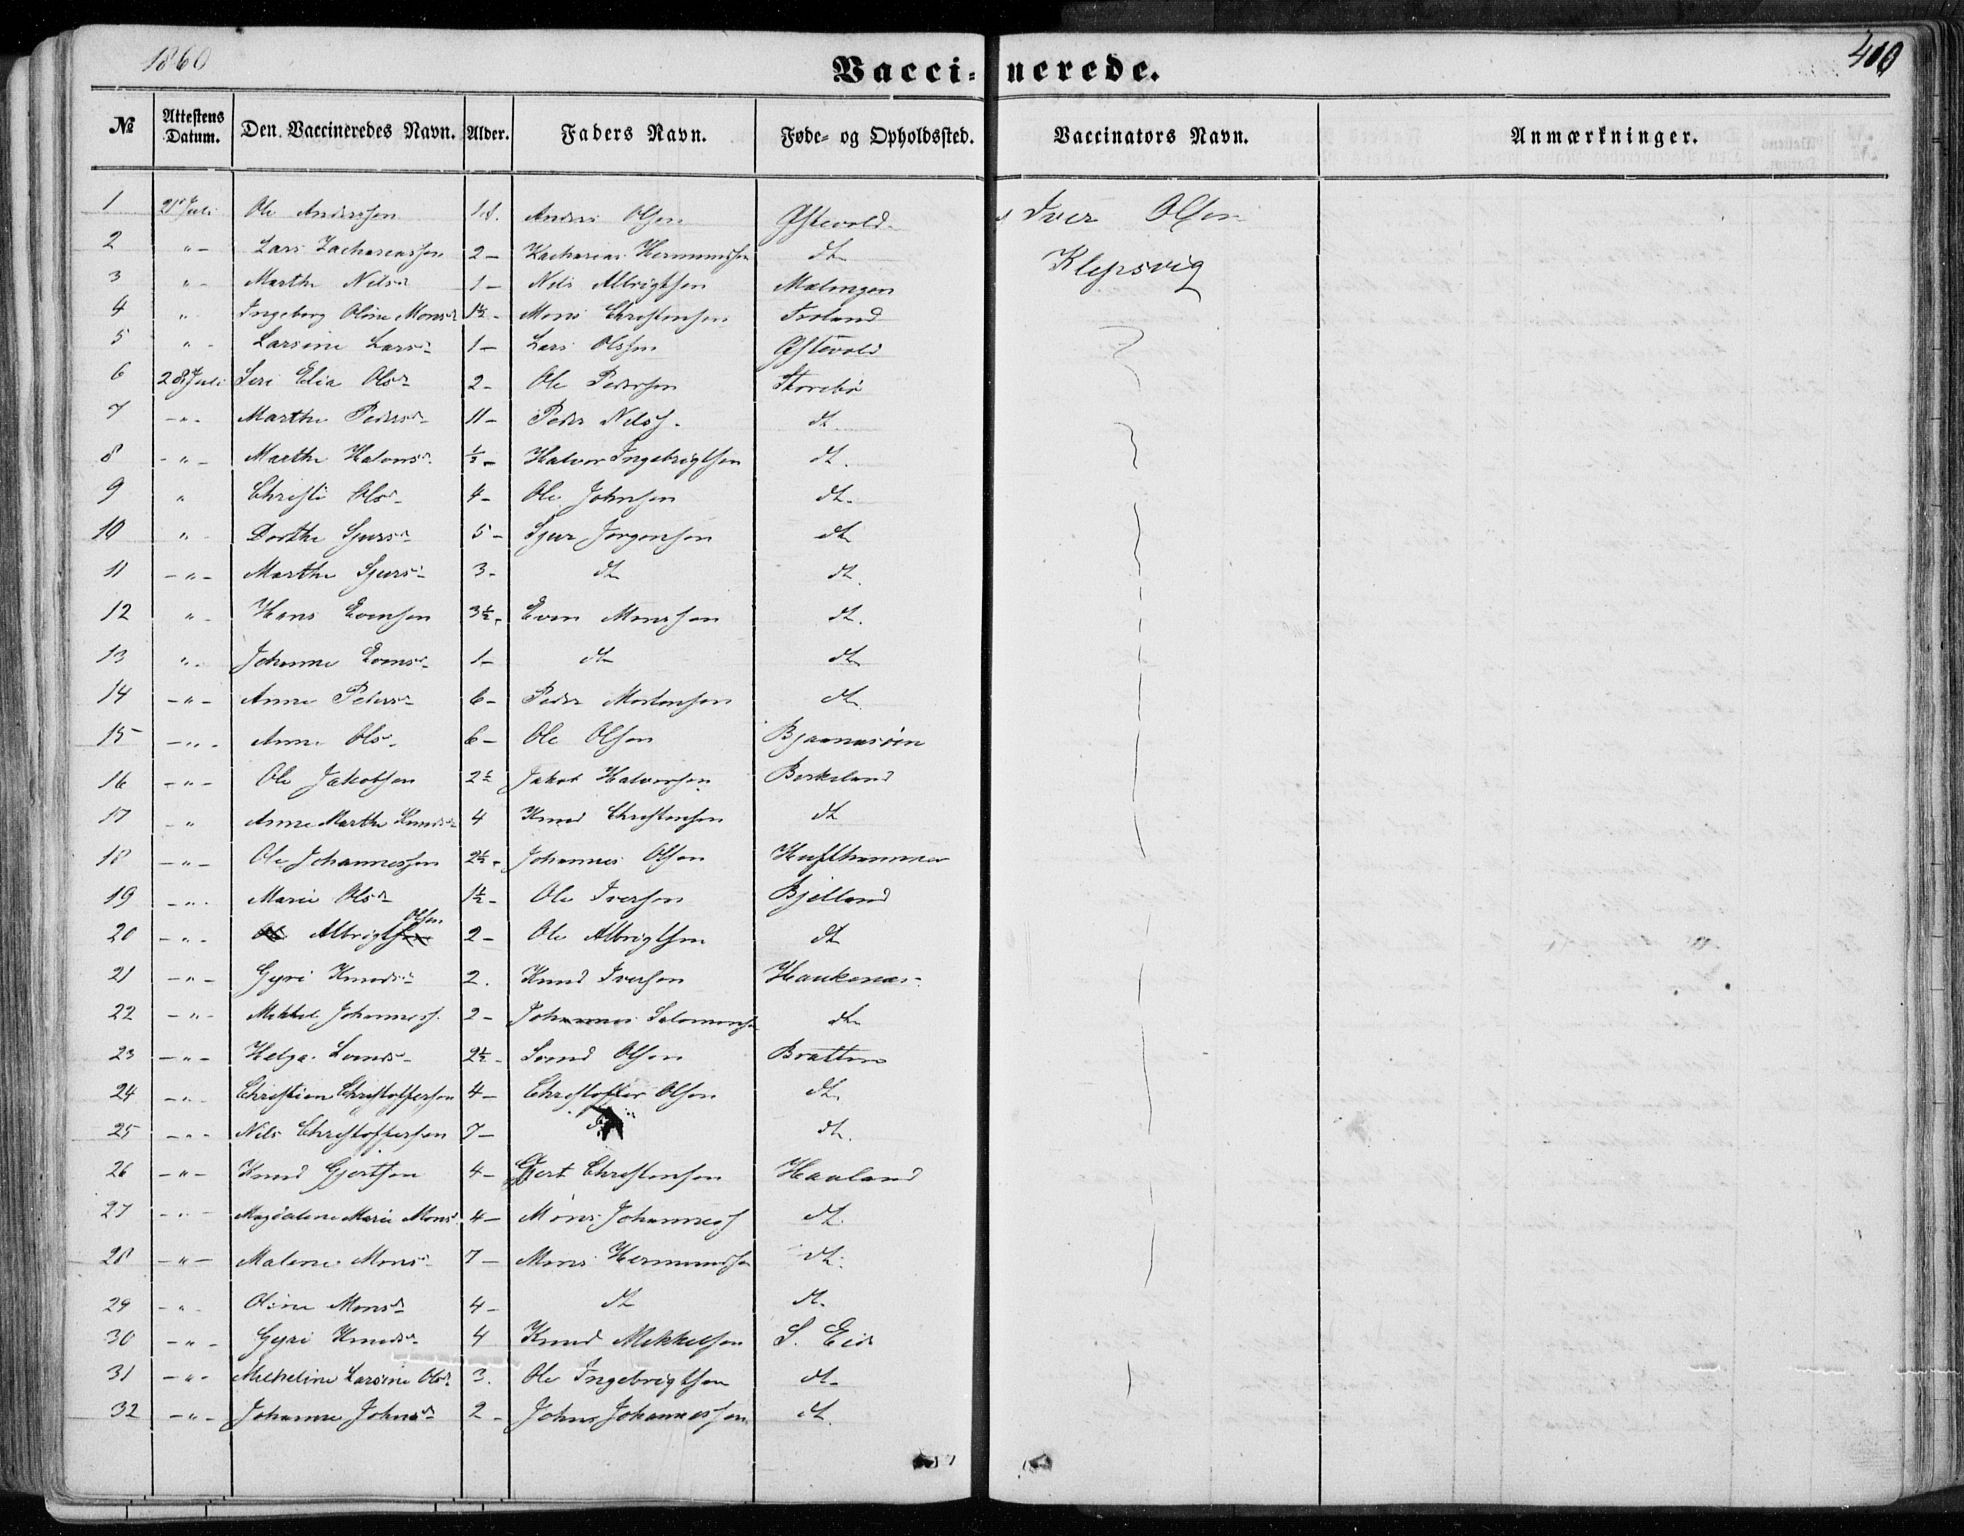 1860
410
Vaccinerede.
№ Attestens Datum. Den Vaccineredes Navn. Alder. Faders Navn. Føde- og Opholdssted. Vaccinators Navn. Anmærkninger.
1 21 Juli Ole Anderssen Anders Olsen Østevold Iver Olsen
2 " - Lars Zachariassen 2 - Zacharias Hermundsen dt Klepsvig
3 " - Marthe Nilsd 1 - Nils Albrigtsen Malingen
4 " Ingeborg Oline Monsd 1½ - Mons Christensen Troland
5 " - Larsine Larsd 1 - Lars Olssen Østevold
6 28 Juli Seri Elia Olsd 2 - Ole Pederssen Storebø
7 - " - Marthe Pedersd 11 - Peder Nilss. dt
8 - " - Marthe Halvorsd. ½ - Halvor Ingebrigtsen dt.
9 " Christi Olsd 4 - Ole Johnsen dt.
10 " Dorthe Sjursd 5 - Sjur Jorgensen dt
11 - " - Marthe Sjursd 3 - dt dt.
12 " - Hans Evensen 3½ - Even Monssen dt.
13 " - Johanne Evensd 1 - dt dt
14 - " - Anne Pedersd 6 - Peder Mortensen dt
15 - " - Anne Olsd 6 - Ole Olsen Bjaanesøen
16 - " - Ole Jakobsen 2½ Jakob Halvorsen Birkeland
17 - " Anne Marthe Knudsd 4 Knud Christensen dt
18 - " - Ole Johannessen 2½ - Johannes Olsen Hufthammer
19 - " - Marie Olsd 1½ - Ole Iversen Bjelland
20 - " - Albrigt Olsen 2 - Ole Albrigtsen dt
21 - " - Gyri Knudsd 2. Knud Iversen Haukenæs
22 - " - Mikkel Johanness. 2 - Johannes Salomonsen dt
23 - " - Helga 2½ - Olsen Bratten
24 - " - Christian Christoffersen 4 - Christoffer Olsen dt.
25 - " - Nils Christoffersen 7 - dt.
26 - " - Knud Gjertsen 4 - Gjert Christensen Haaland
27 - " - Magdalene Marie Monsd 4 - Mons Johanness dt.
28 - " - Malene Monsd 7 - Mons Hermundsen dt.
29 - " - Oline Monsd 4 - dt dt.
30 - " - Gyri Knudsd 4 Knud Mikkelsen S. Eide
31 - " - Micheline Larsine Olsd 3. Ole Ingebrigtsen dt
32 - " - Johanne Johnsd 2 - Johns Johannessen dt.